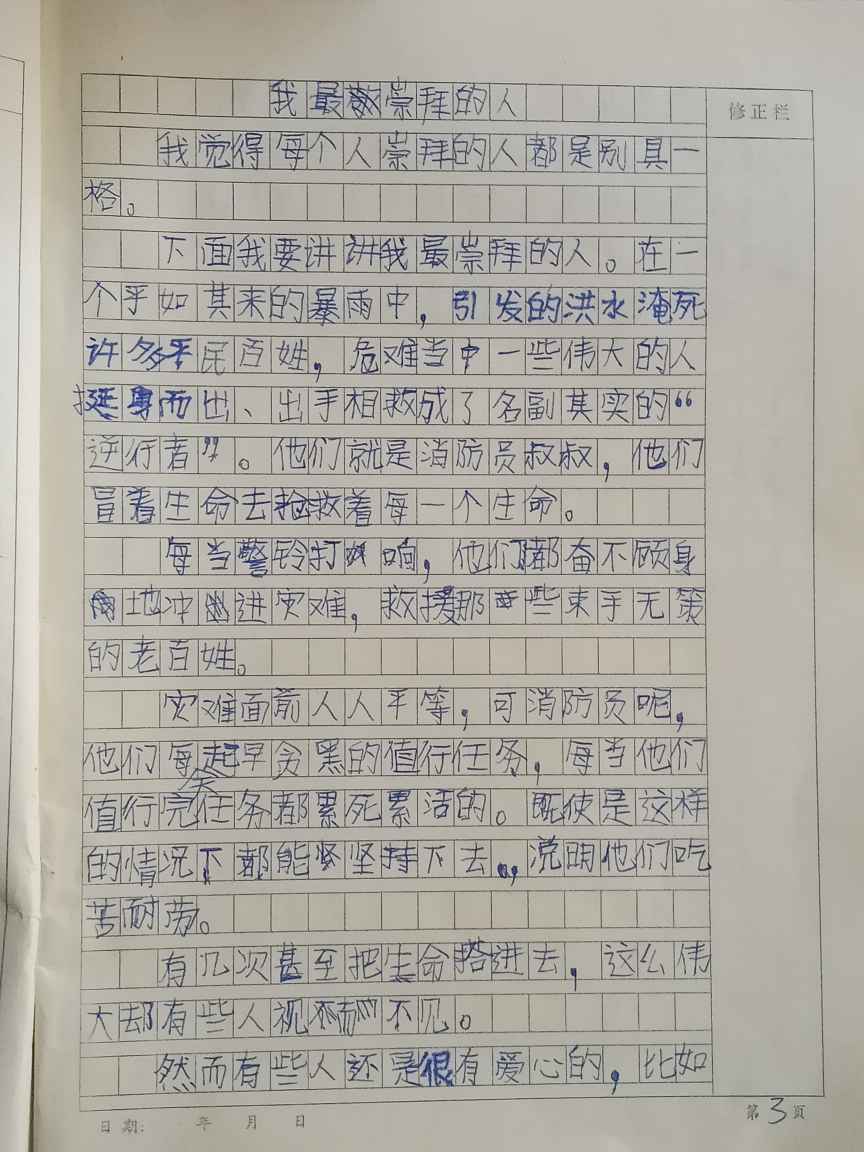 我最崇拜的人
修正栏
我觉得每个人崇拜的人都是别具一
格。
下面我要讲讲我最崇拜的人。在一
个乎如其来的暴雨中，引发的洪水淹死
许多平民百姓，危难当中一些伟大的人
挺身而出、出手相救成了名副其实的“
逆行者”。他们就是消防员叔叔，他们
冒着生命去抢救着每一个生命。
每当警铃打响，他们都奋不顾身
地冲进灾难，救援那些束手无策
的老百姓。
灾难面前人人平等，可消防员呢，
他们每天起早贪黑的值行任务，每当他们
值行完任务都累死累活的。既使是这样
的情况下都能坚持下去，说明他们吃
苦耐劳。
有几次甚至把生命搭进去，这么伟
大却有些人视而不见。
然而有些人还是很有爱心的，比如
日期： 年 月 日
第3页